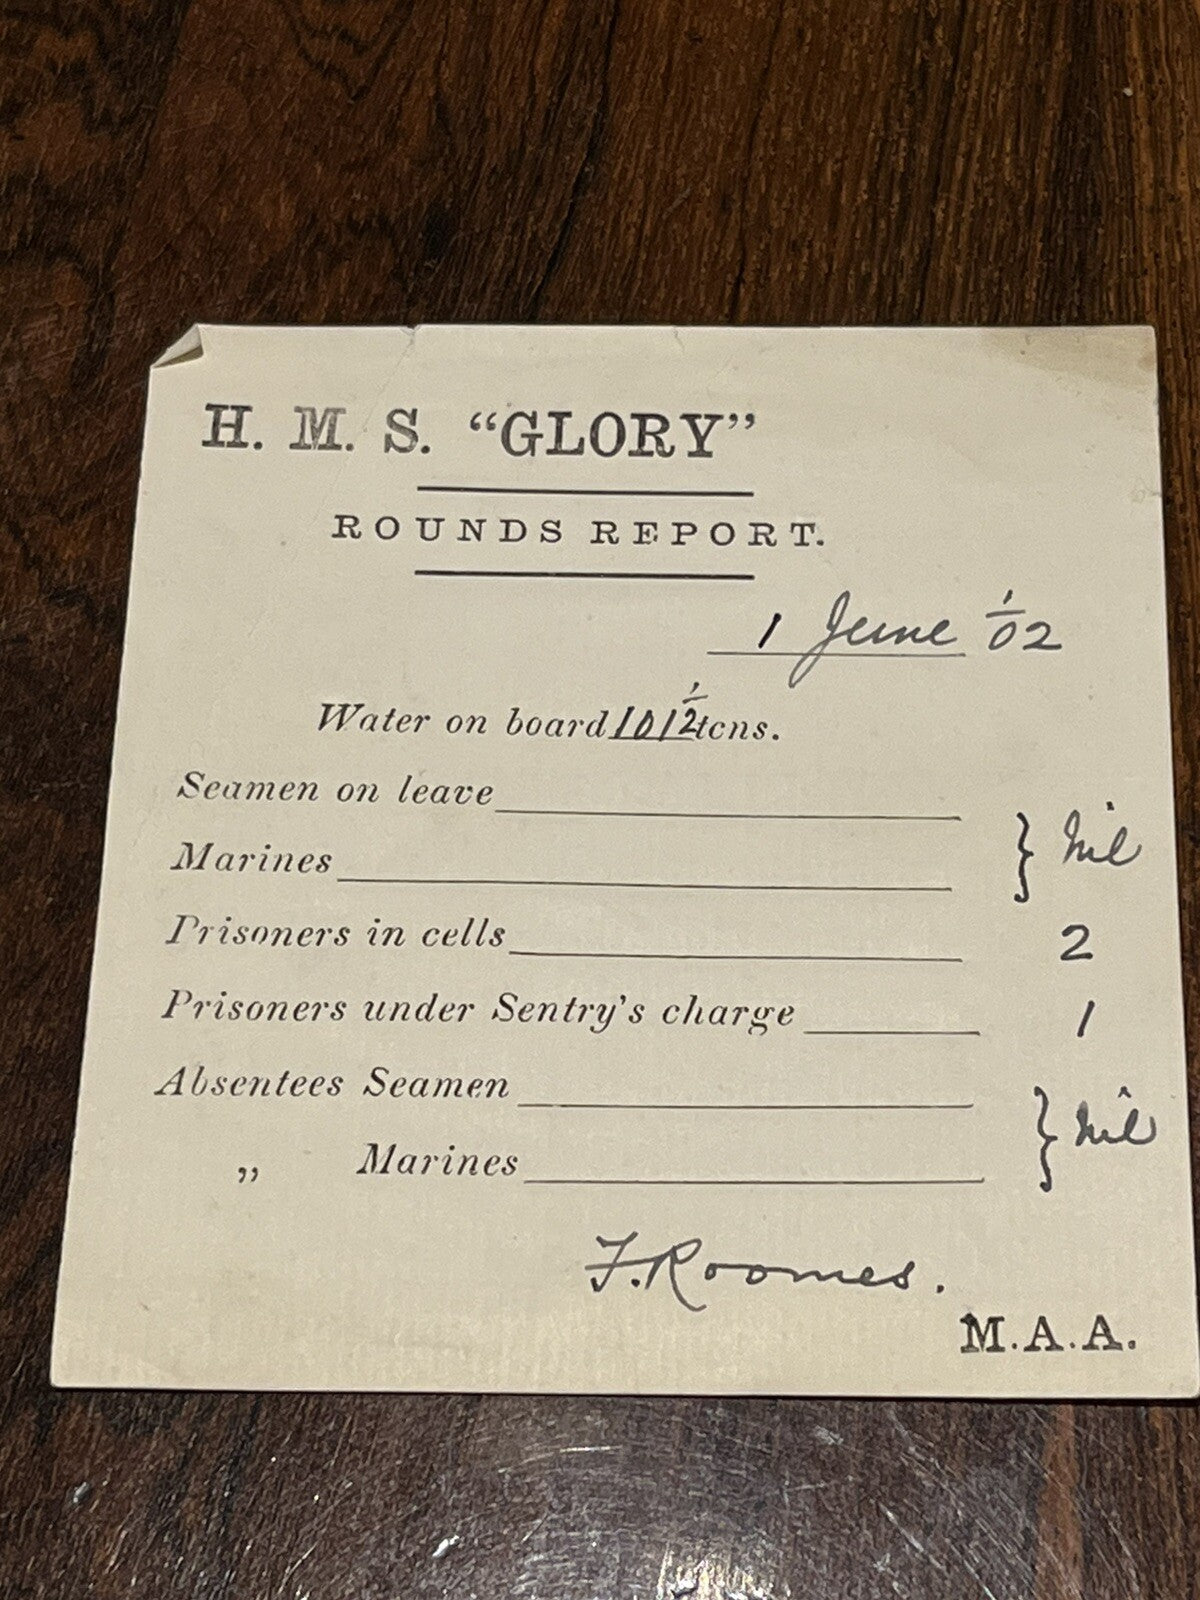 H. M. S. "GLORY"
ROUNDS REPORT.
1 June '/02
Water on board 101½ tons.
Seamen on leave
Marines } Nil
Prisoners in cells 2
Prisoners under Sentry's charge 1
Absentees Seamen
„ Marines } Nil
F. Roomes.
M.A.A.